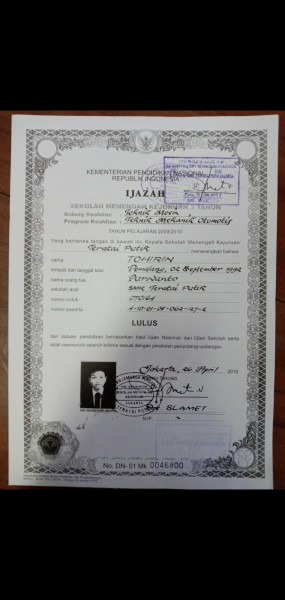 KEMENTERIAN PENDIDIKAN NASIONAL
REPUBLIK INDONESIA
IJAZAH
SEKOLAH MENENGAH KEJURUAN 3 TAHUN
Bidang Keahlian : Teknik Mesin
Program Keahlian : Teknik Mekanik Otomotif
TAHUN PELAJARAN 2009/2010
Yang bertanda tangan di bawah ini, Kepala Sekolah Menengah Kejuruan
Teratai Putih menerangkan bahwa:
nama TOHIRIN
tempat dan tanggal lahir 02 September 1992
nama orang tua
sekolah asal SMK Teratai Putih
nomor induk
nomor peserta
LULUS
dari satuan pendidikan berdasarkan hasil Ujian Nasional dan Ujian Sekolah serta
telah memenuhi seluruh kriteria sesuai dengan peraturan perundang-undangan.
Jakarta, 26 April 2010
Kepala Sekolah,
SLAMET
No. DN-01 Mk 0046800